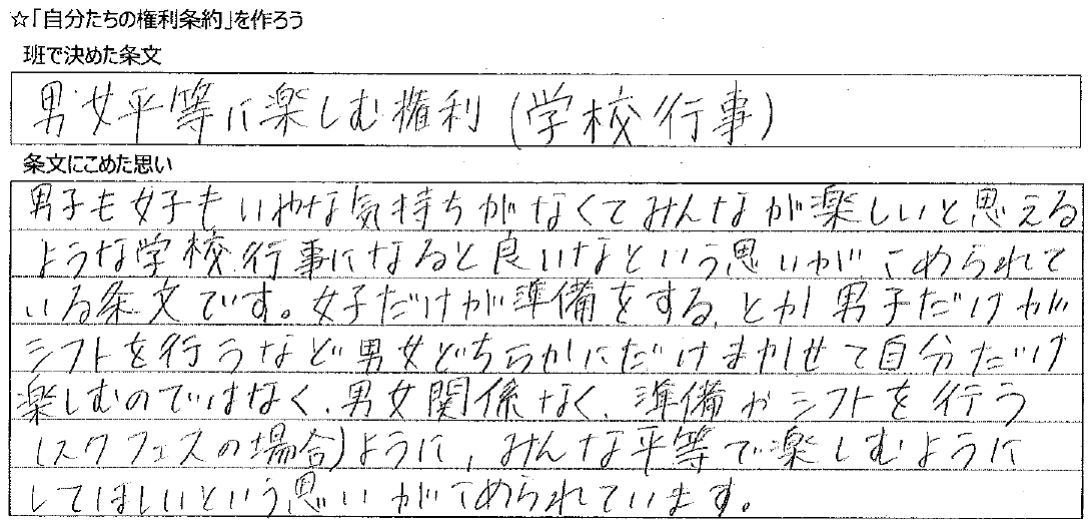 ☆「自分たちの権利条約」を作ろう
班で決めた条文
男女平等に楽しむ権利(学校行事)
条文にこめた思い
男子も女子もいやな気持ちがなくてみんなが楽しいと思える
ような学校行事になると良いなという思いがこめられて
いる条文です。女子だけが準備をする、とか男子だけが
シフトを行うなど男女どちらかにだけまかせて自分だけ
楽しむのではなく、男女関係なく、準備やシフトを行う
(スクフェスの場合)ように、みんな平等で楽しむように
してほしいという思いがこめられています。